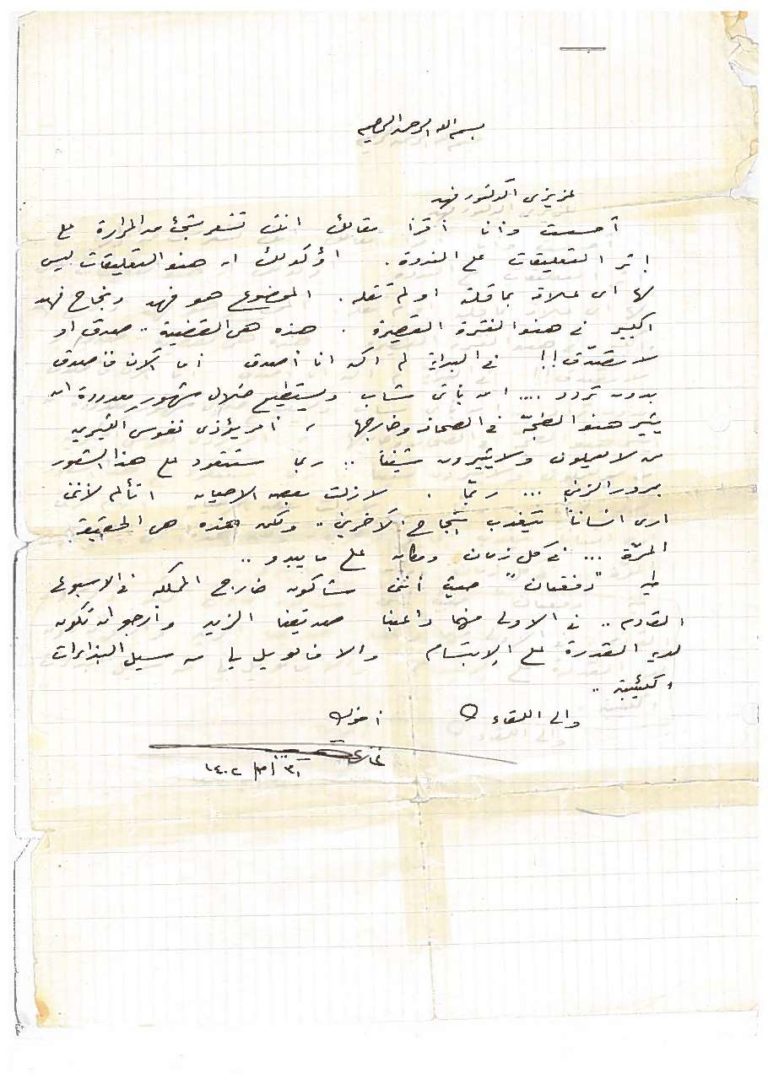 بسم الله الرحمن الرحيم
عزيزي الدكتور فهد
أحسست وأنا أقرأ مقالك انك تشعر بشيء من المرارة على
اثر التعليقات على الندوة . أؤكد لك ان هذه التعليقات ليس
لها أي علاقة بما قلته او لم تقله . الموضوع هو فهد ونجاح فهد
الكبير في هذه الفترة القصيرة . هذه هي القضية .. صدق او
لا تصدّق !! في البداية لم اكن انا أصدق أما الآن فأصدق
بدون تردد .... ان يأتي شاب ويستطيع خلال شهور معدودة ان
يثير هذه الضجّة في الصحافة وخارجها ، أمر يؤذي نفوس الكثيرين
من لا يعملون ولا يثيرون شيئاً .. ربما ستتعود على هذا الشعور
بمرور الزمن ... ربّما . لا زلت بعض الاحيان أتألم لأنني
ارى انساناً يتعذب بنجاح الآخرين .. ولكن هذه هي الحقيقة
المرّة ... في كل زمان ومكان على ما يبدو ..
طيه " دفقتان " حيث أنني سأكون خارج المملكة في الاسبوع
القادم .. في الاولى منهما داعبنا صديقنا الزيد وأرجو ان تكون
لديه القدرة على الإبتسام والا فالويل لي من سيل البذاءات
الكئيبة ..
والى اللقاء أخوك
غازي
١٤٠٢